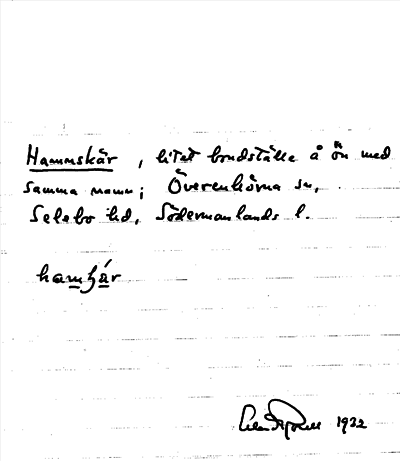 Hammskär, litet bondställe å ön med
samma namn; Överenhörna sn,
Selebo hd, Södermanlands l.
hamʃár
1932